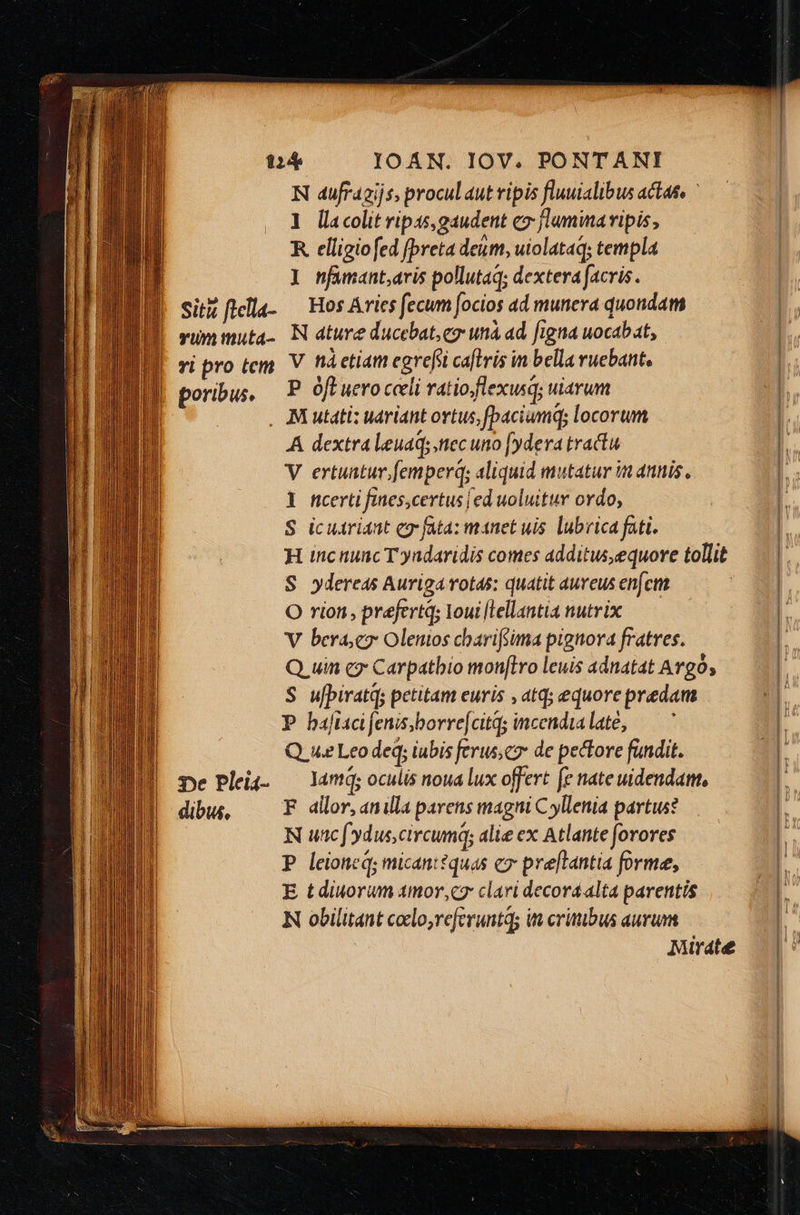 124 IOAN. IOV. PONTANI
N aufragijs, procul aut ripis fluuialibus actas.
I lla colit ripas, gaudent & flumina ripis,
R elligio sed spreta deûm, uiolataq; templa
I nfamant, aris pollutaq; dextera sacris.
Sitū stella- Hos Aries secum socios ad munera quondam
rum muta- N aturæ ducebat, & unà ad signa uocabat,
ri pro tem V nà etiam egressi castris in bella ruebant.
poribus. P òst uero cœli ratio, flexusq; uiarum
M utati: uariant ortus, spaciumq; locorum
A dextra leuaq;, nec uno sydera tractu
V ertuntur, semperq; aliquid mutatur in annis.
I ncerti fines, certus sed uoluitur ordo,
S ic uariant & fata: manet uis lubrica fati.
H inc nunc Tyndaridis comes additus, æquore tollit
S ydereas Auriga rotas: quatit aureus ensem
O rion, præfertq; Ioui stellantia nutrix
V bera, & Olenios charissima pignora fratres.
Q uin & Carpathio monstro leuis adnatat Argò,
S uspiratq; petitam euris, atq; æquore prædam
P hasiaci senis, horrescitq; incendia latè,
Q uæ Leo deq; iubis ferus, & de pectore fundit.
De Pleia- Iamq; oculis noua lux offert se nate uidendam.
dibus. F allor, an illa parens magni Cyllenia partus?
N unc sydus, circumq; aliæ ex Atlante sorores
P leioneq; micant? quas & præstantia formæ,
E t diuorum amor, & clari decora alta parentis
N obilitant cœlo, referuntq; in crinibus aurum
Miratæ